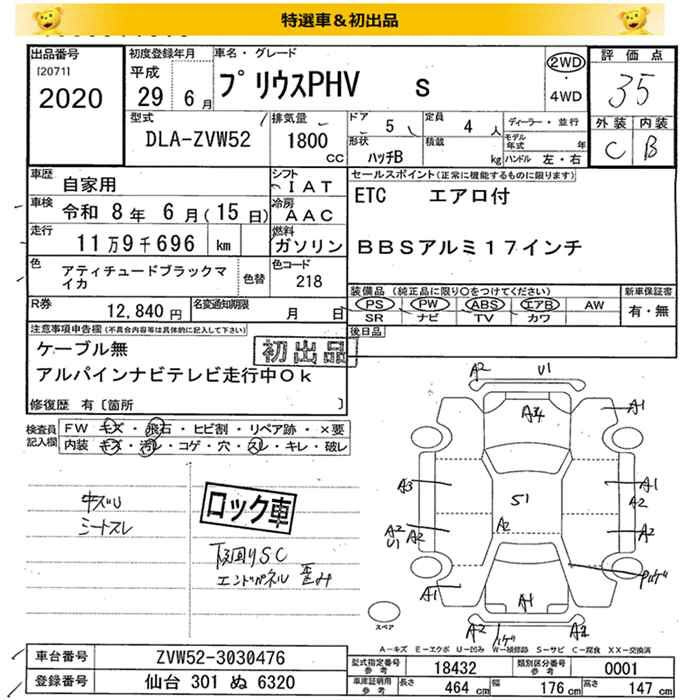 特選車&初出品
出品番号 初度登録年月 車名・グレード 評価点
[2071] 平成 プリウスPHV S 2WD
2020 29年6月 ・4WD 35
型式 排気量 ドア 定員 ディーラー・並行 外装 内装
DLA-ZVW52 1800cc 5 4人 モデル年式 年 C B
形状 ハッチB 積載 kg ハンドル 左・右
車歴 自家用 シフト IAT セールスポイント(正常に機能するものに限ります)
車検 令和8年6月(15日) 冷房 AAC ETC エアロ付
走行 11万9千696 km 燃料 ガソリン BBSアルミ17インチ
色 アティチュードブラックマイカ 色替 色コード 218
装備品(純正品に限り○をつけてください) 新車保証書
R券 12,840円 名変通知期限 月 日 PS PW ABS エアB AW 有・無
SR ナビ TV カワ
注意事項申告欄(不具合内容等は具体的に記入して下さい) 後日品
ケーブル無 初出品
アルパインナビテレビ走行中Ok
修復歴 有〔箇所 〕
検査員記入欄 FW キズ・飛石・ヒビ割・リペア跡・×要
内装 キズ・汚レ・コゲ・穴・スレ・キレ・破レ
A2 U1
A34 A1
A3 A1
S1 A2
A2 A2 A2 A2
U1
A1 A1
A2 A2
キズU
シートスレ
ロック車
下回りSC
エンドパネル 歪み
スペア
A-キズ E-エクボ U-凹み W-補修跡 S-サビ C-腐食 XX-交換済
車台番号 ZVW52-3030476 型式指定番号 参考 18432 類別区分番号 参考 0001
登録番号 仙台 301 ぬ 6320 車庫証明用 参考 長さ 464cm 幅 176cm 高さ 147cm